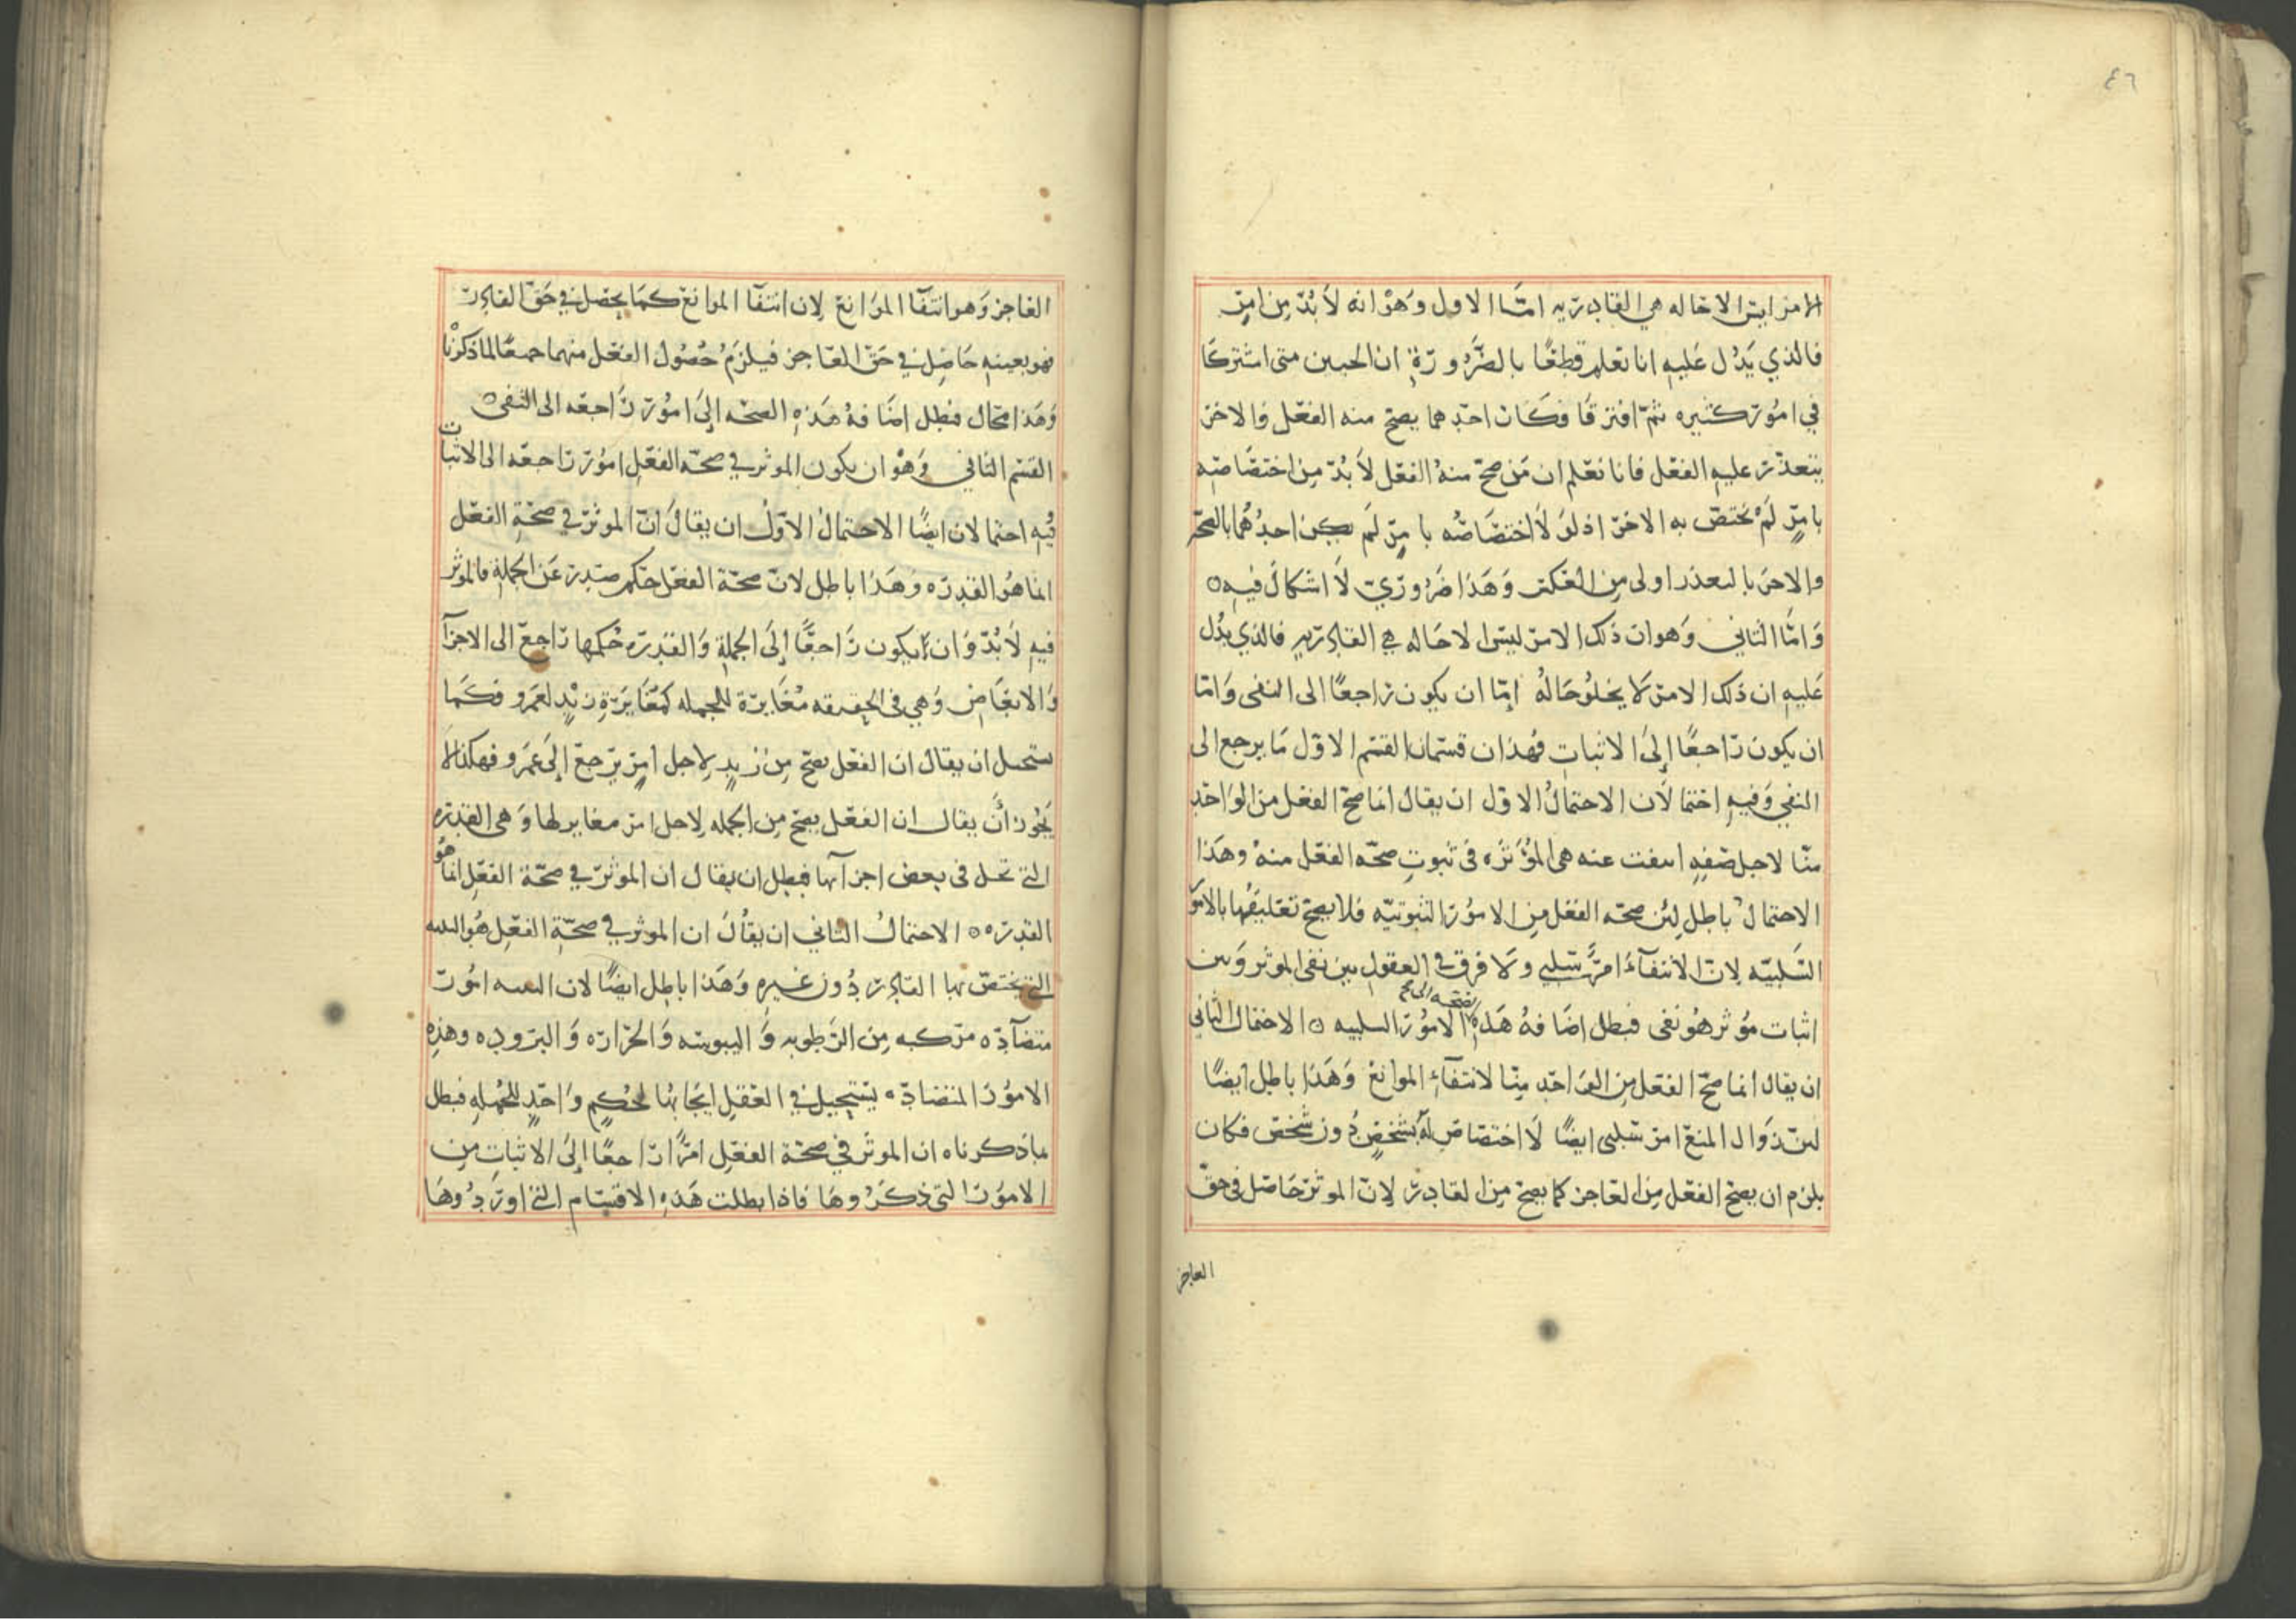 ٤٦
الامر ليس الا حاله هي القادريه امّا الاول وهو انه لا بُدّ من امرٍ
فالذي يَدُل عَليهِ انا نعلم قطعًا بالضَّرُورَةِ ان الحيين متى اشتركا
في امُور كثيره ثمّ افترقا فكَان احدهما يصح منه الفعل والاخر
يتعذر عليهِ الفعل فانا نعلم ان مَن صحّ منهُ الفعل لا بُدّ مِن اختصَاصِه
بامرٍ لَمْ يختصّ به الاخر اذ لَو لا اختصَاصُه بامرٍ لَم يكن احدُهُما بالصحّه
والاخر بالتعذر اولى مِن العَكس وَهَذا ضَرُوريّ لا اشكالَ فيهِ ه
وَامَّا الثاني وَهو ان ذلك الامر ليسَ الا حَاله هي القادريه فالذي يدُل
عَليهِ ان ذلك الامر لا يخلُو حَالهُ امّا ان يكون راجعًا الى النفى وَامّا
ان يكون رَاجعًا إلىَ الاثباتِ فهذان قسمان القسم الاوّل مَا يرجع الى
النفي وَفيهِ احتمالان الاحتمالُ الاوّل ان يقال انما صحّ الفعل من الوَاحد
منّا لاجل صفهٍ انتفت عنه هى المؤثره فى ثبوتِ صحّه الفعل منهُ وهَذا
الاحتمالُ باطل لِئن صحّه الفعل مِن الامُور الثبوتيّه فلا يصحّ تعليقُها بالامور
السَّلبيّه لِانّ الانتفآءَ امرٌ سَلبي ولا فرق في العقولِ بين نفى الموثر وَبين
اثبات مُوثر هُو نفى فبطل اضَافهُ هَذهِ الصحه الى الامُور السلبيه ه الاحتمال الثاني
ان يقال انما صحّ الفعل مِن الوَاحد مِنّا لانتفآءِ الموانع وَهَذا باطل ايضًا
لئن زوَال المنع امر سَلبى ايضًا لا اختصَاص لهُ بشَخصٍ دُون شَخص فكان
يلزم ان يصحّ الفعل مِن العَاجز كما يصحّ مِن القادر لِانّ الموثر حَاصل فى حقّ
العاجز
العَاجز وَهو انتفآا الموَانع لِان انتفآا الموانع كمَا يحصل في حَقّ القادر
فهو بعينهِ حَاصِل في حَقّ العَاجز فيلزمُ حُصُول الفعل منهما جميعًا لما ذكرْنا
وَهَذا محال فبطل اضَافهُ هَذهِ الصحّه إلىَ امُور رَاجعه الى النفى ه
القسم الثاني وَهْو ان يكون الموثر في صحّه الفعلِ امُور رَاجعه الى الاثبات
فيهِ احتمالان ايضًا الاحتمالُ الاوّلُ ان يقالَ انّ الموثر في صحّةِ الفعل
انما هُو القدره وَهَذا باطل لانّ صحّة الفعل حكم صَدر عَن الجملةِ فالموثر
فيهِ لا بُدّ وَان يكون رَاجعًا إلىَ الجملةِ وَالقدره حُكمها رَاجع الى الاجزآ
وَالابعَاض وَهي فى الحقيقه مُغَايرَة للجمله كمُغَايَرَةِ زيْدٍ لعَمرو فكمَا
يستحيل ان يقال ان الفعل يصحّ مِن زيدٍ لِاجل امرٍ يَرجع إلىَ عَمرو فهكذا لا
يَجُوز أنَ يقال ان الفعل يصحّ مِن الجمله لِاجل امر مغاير لها وَهى القدره
التى تحل فى بعض اجزآئها فبطل ان يقال ان الموثر في صحّة الفعلِ انما هُو
القدره ه الاحتمالُ الثاني ان يقالَ ان الموثر في صحّةِ الفعلِ هُو البنيه
التى يختصّ بها القادر دُون غيرهِ وَهَذا باطل ايضًا لان البنيه امُور
متضآدّه مركبه مِن الرّطوبه وَاليبوسه وَالحَرَاره وَالبرُوده وهذهِ
الامُور المتضادّه يَستحيل في العقلِ ايجَابها لحُكمٍ وَاحدٍ للجُملهِ فبطل
بما ذكرناه ان الموثر في صحّة الفعل امرًا رَاجعًا إلىَ الاثباتِ مِن
الامُور التى ذكرُوهَا فاذا بطلت هَذهِ الاقسَام التى اورَدُوهَا